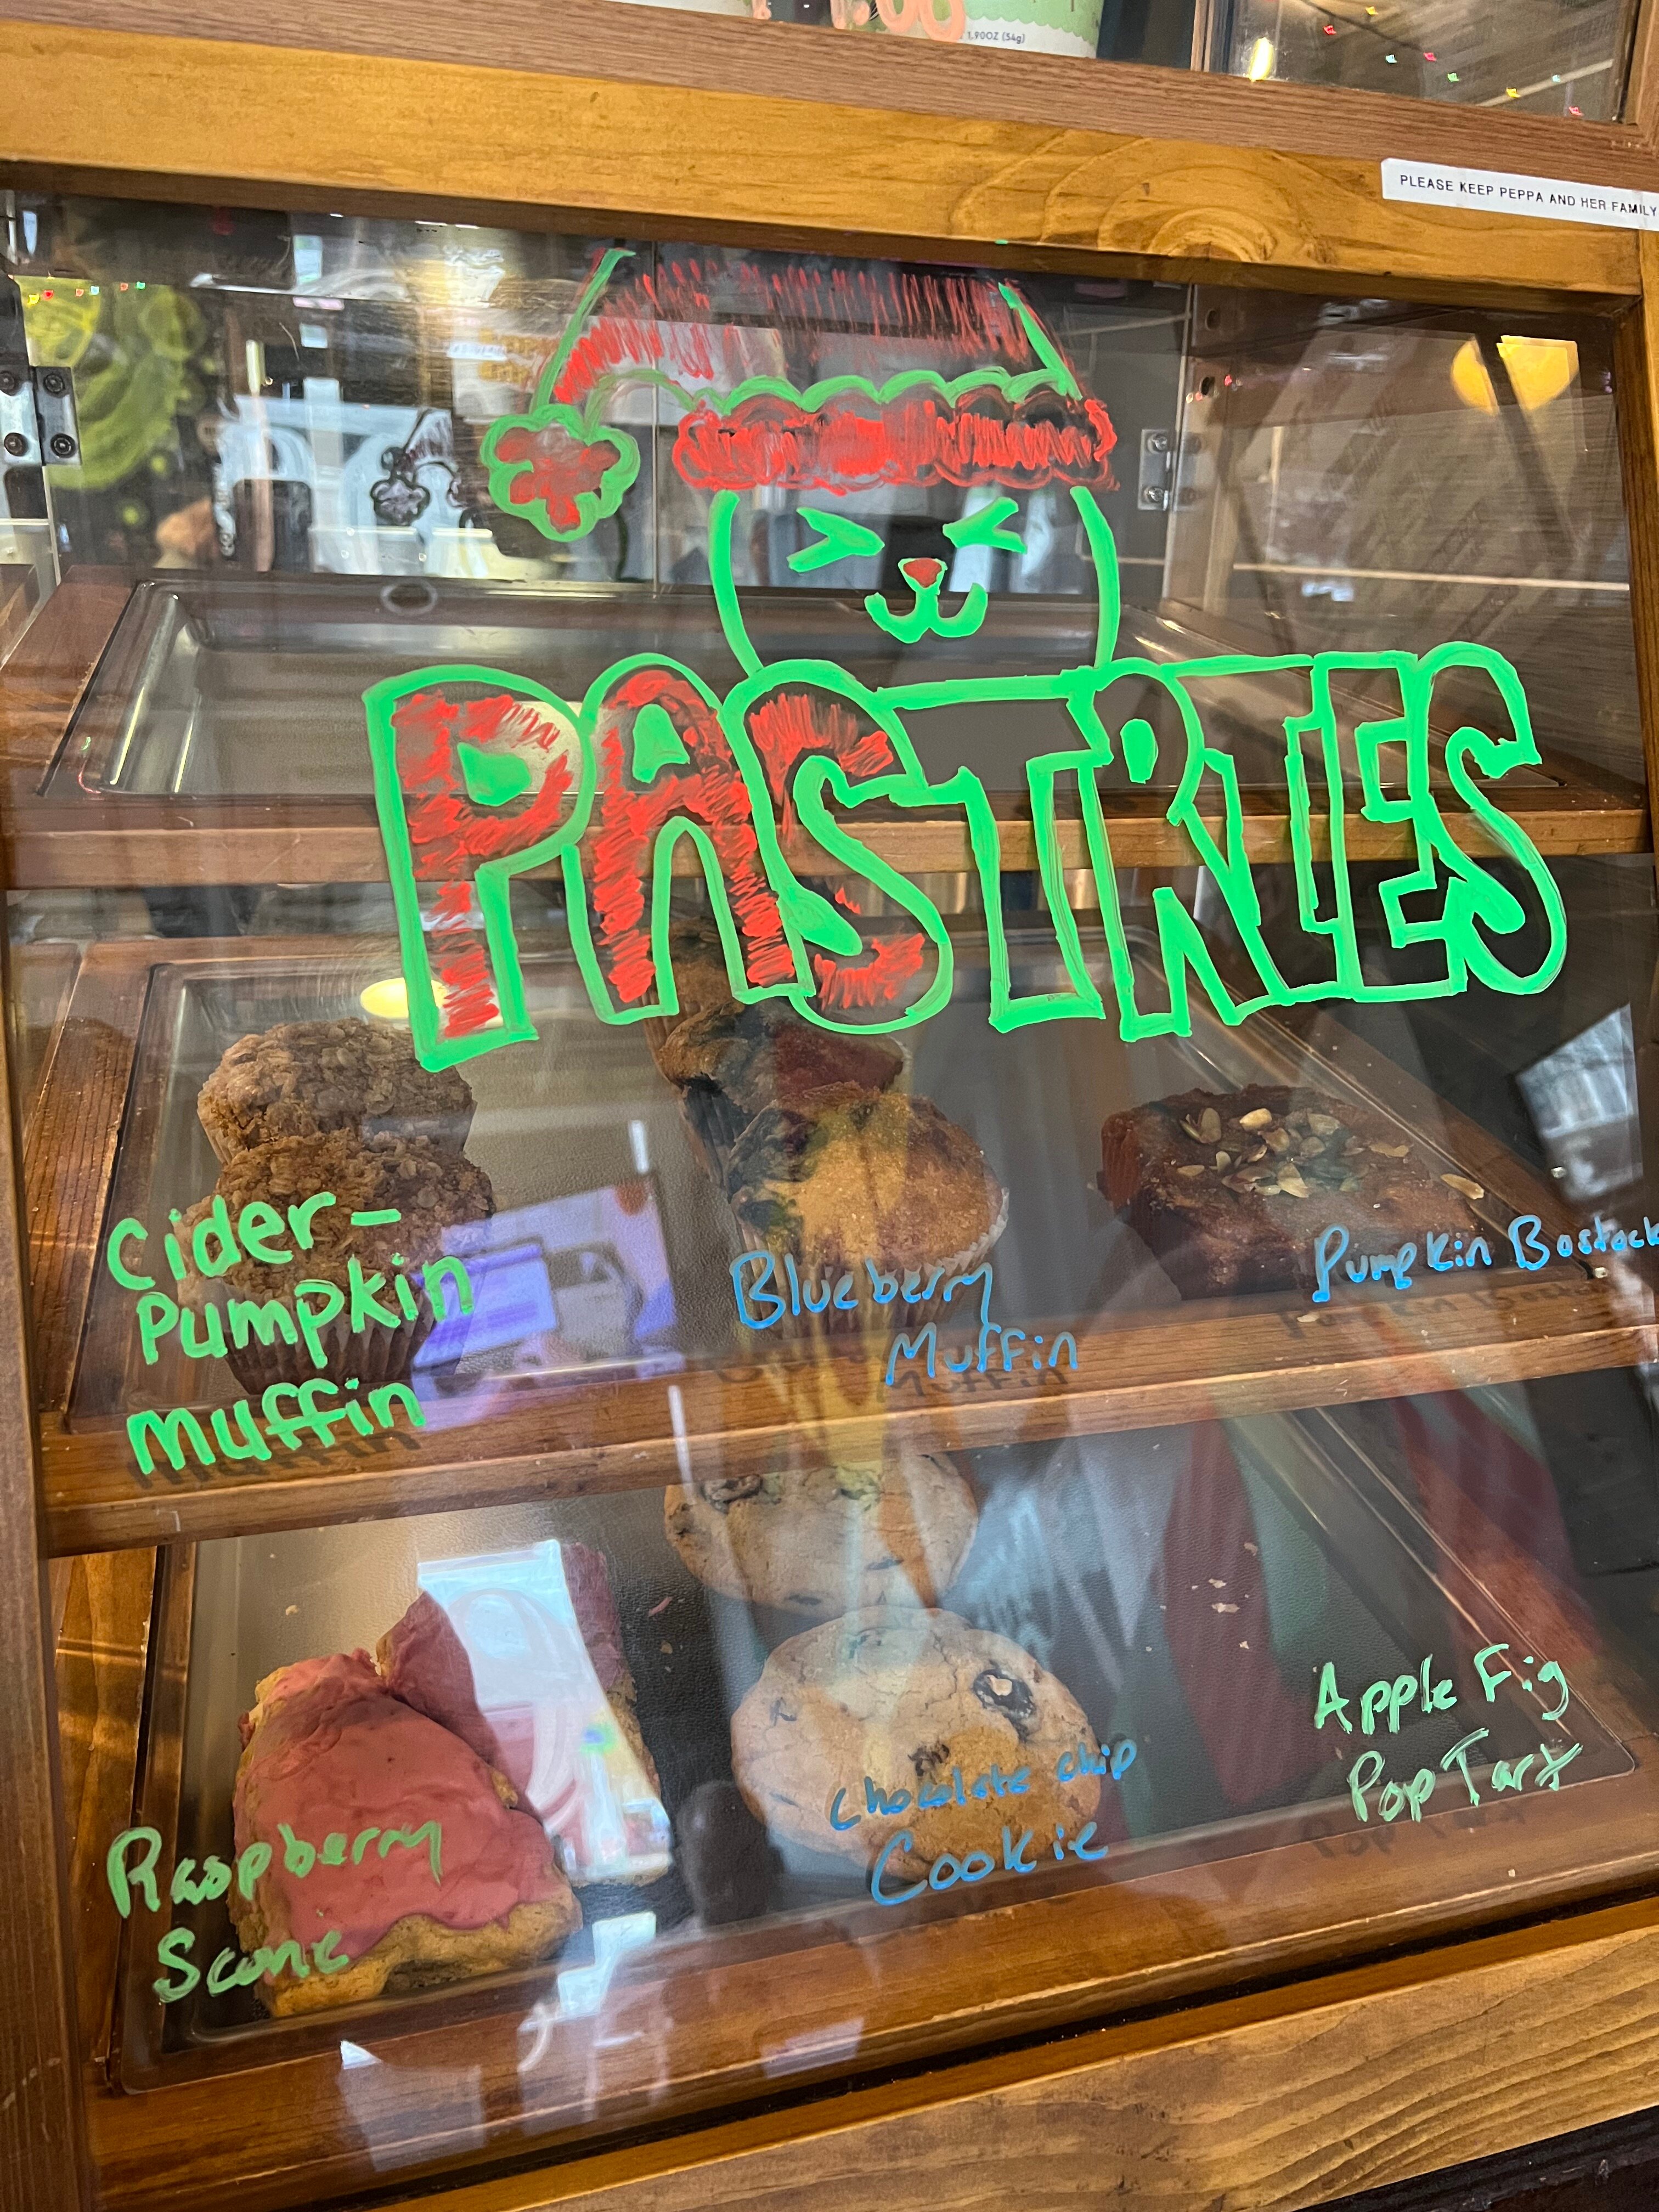 1.90OZ (54g)
PLEASE KEEP PEPPA AND HER FAMILY
PASTRIES
Cider-
Pumpkin
Muffin
Blueberry
Muffin
Pumpkin Bostock
Raspberry
Scone
Chocolate chip
Cookie
Apple Fig
Pop Tart